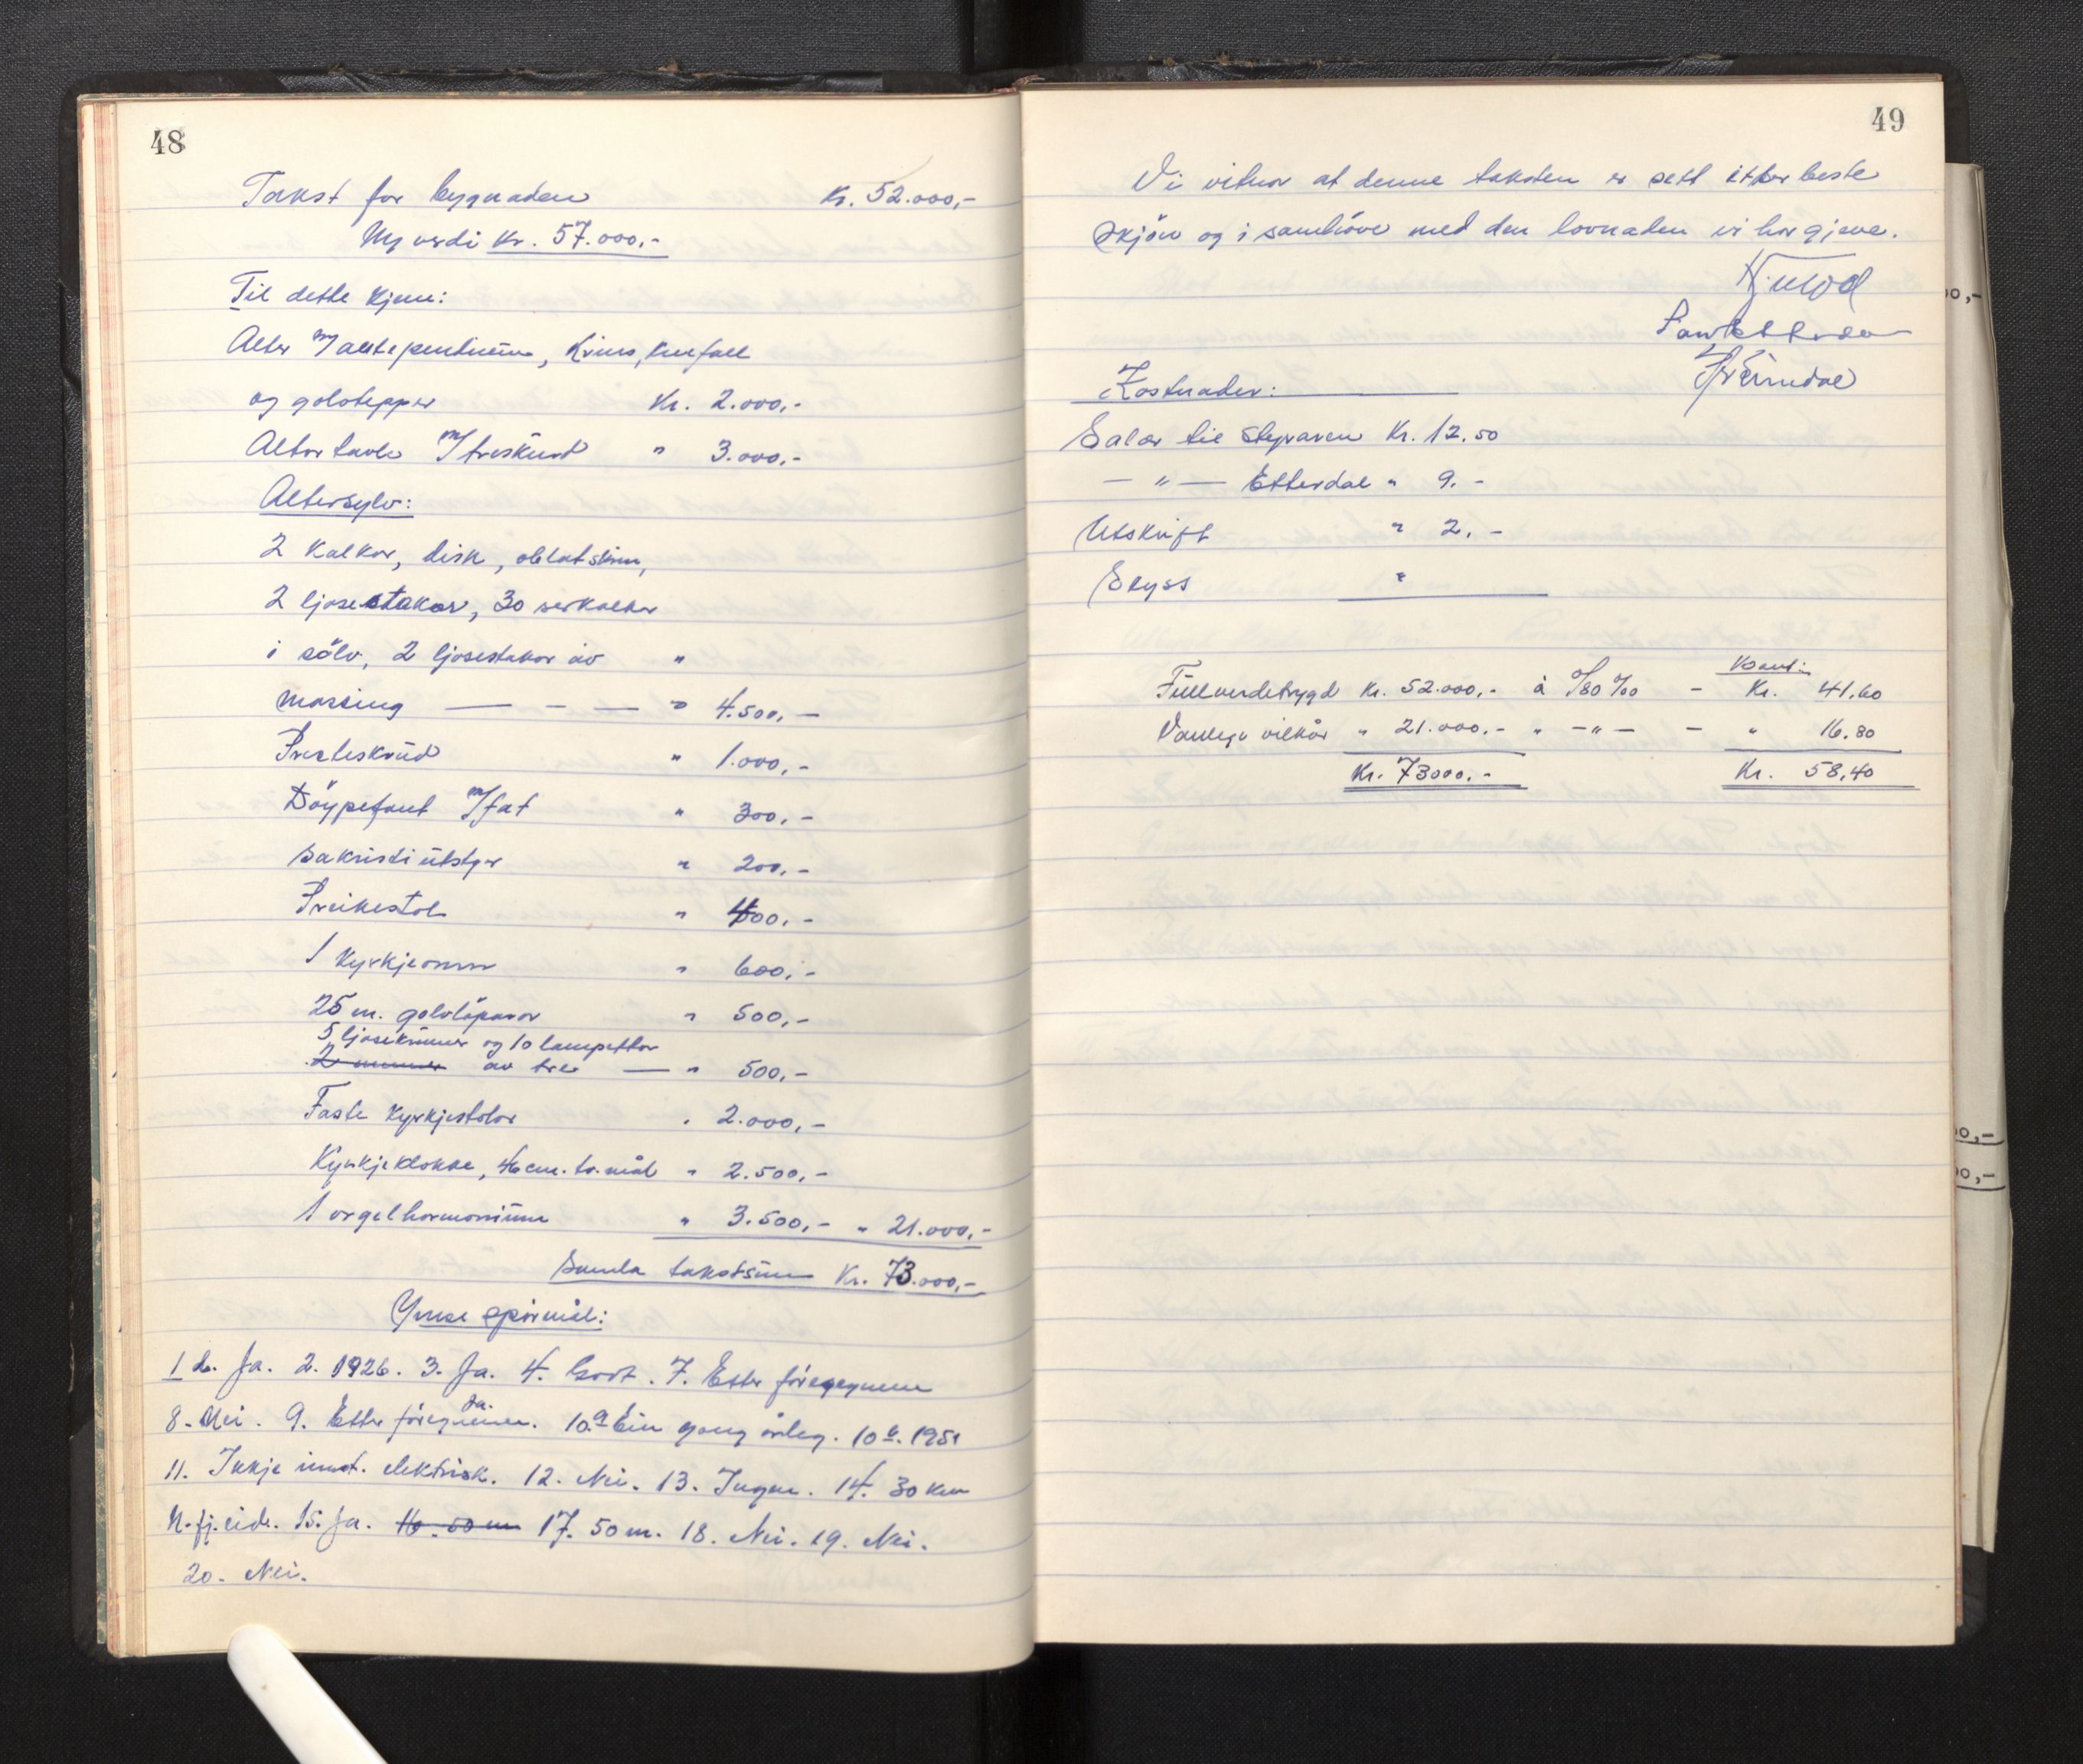 48
Takst for bygnaden Kr. 52.000,-
Ny verdi Kr. 57.000.-
Til dette kjem:
Alter m/ antependium, krins, knefall
og golvtepper Kr. 2.000,-
Altertavle m/ treskurd " 3.000,-
Altersylv:
2 kalkar, disk, oblatskrin,
2 ljosestakar, 30 serkalkar
i sölv, 2 ljosestakar av "
massing — - — " 4.500,-
Presteskrud " 1.000,-
Döypefont m/fat " 300,-
Sakristiutstyr " 200,-
Preikestol " 400,-
1 kyrkjeomn " 600,-
25 m. golvlöparar " 500,-
5 ljosekruner og 10 lampettar
2 umner av tre — " 500,-
Faste kyrkjestolar " 2.000,-
Kyrkjeklokke, 46 cm. tv.mål " 2.500,-
1 orgelharmonium " 3.500,- " 21.000,-
Samla takstsum Kr. 73.000,-
Ymse spörmål:
1 Ja. 2. 1926. 3. Ja. 4. Godt. 7. Etter föresegnene
Ja.
8. Nei. 9. Etter föresegnene. 10.a Ein gong årleg. 10 b. 1951
11. Ikkje innst. elektrisk. 12. Nei. 13. Ingen. 14. 30 km
N.fj.eid. 15. Ja. 16. 50 m 17. 50 m. 18. Nei. 19. Nei.
20. Nei.
49
Vi vitnar at denne taksten er sett etter beste
skjön og i samhöve med den lovnaden vi har gjeve.
Kostnader:
Salær til styraren Kr. 12.50
— " — Etterdal " 9.-
Utskrift " 2.-
Skyss "
Kont.:
Fullverdetrygd Kr. 52.000,- à 0/80 ‰ - Kr. 41,60
Vanlege vilkår " 21.000.- " -"- - " 16.80
Kr. 73000.- Kr. 58,40